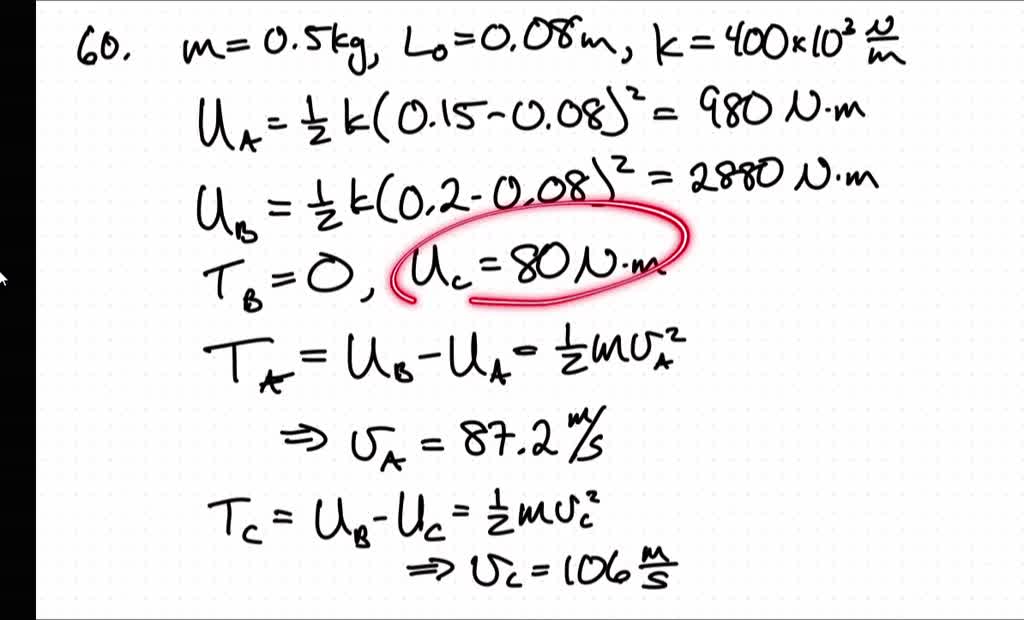 60. m = 0.5kg, L₀ = 0.08m, k = 400×10³ N/m
U_A = ½ k(0.15 - 0.08)² = 980 N·m
U_B = ½ k(0.2 - 0.08)² = 2880 N·m
T_B = 0, U_C = 80 N·m
T_A = U_B - U_A = ½ m v_A²
⇒ v_A = 87.2 m/s
T_C = U_B - U_C = ½ m v_C²
⇒ v_C = 106 m/s